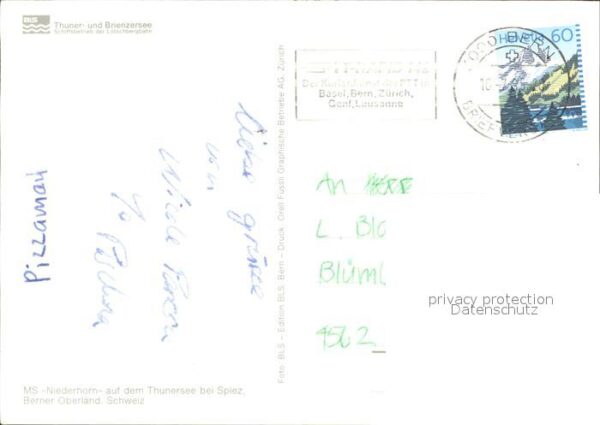 BLS
Thuner- und Brienzersee
Schiffsbetrieb der Lötschbergbahn
HELVETIA 60
3000 BERN
BRIEFVER
Der Kurierdienst der PTT in
Basel, Bern, Zürich,
Genf, Lausanne
Foto: BLS – Edition BLS, Bern – Druck: Orell Füssli Graphische Betriebe AG, Zürich
Liebe grüsse
von
Pizzaman
An HERR
L. Blc
Blüml
4562
privacy protection
Datenschutz
MS «Niederhorn» auf dem Thunersee bei Spiez,
Berner Oberland, Schweiz